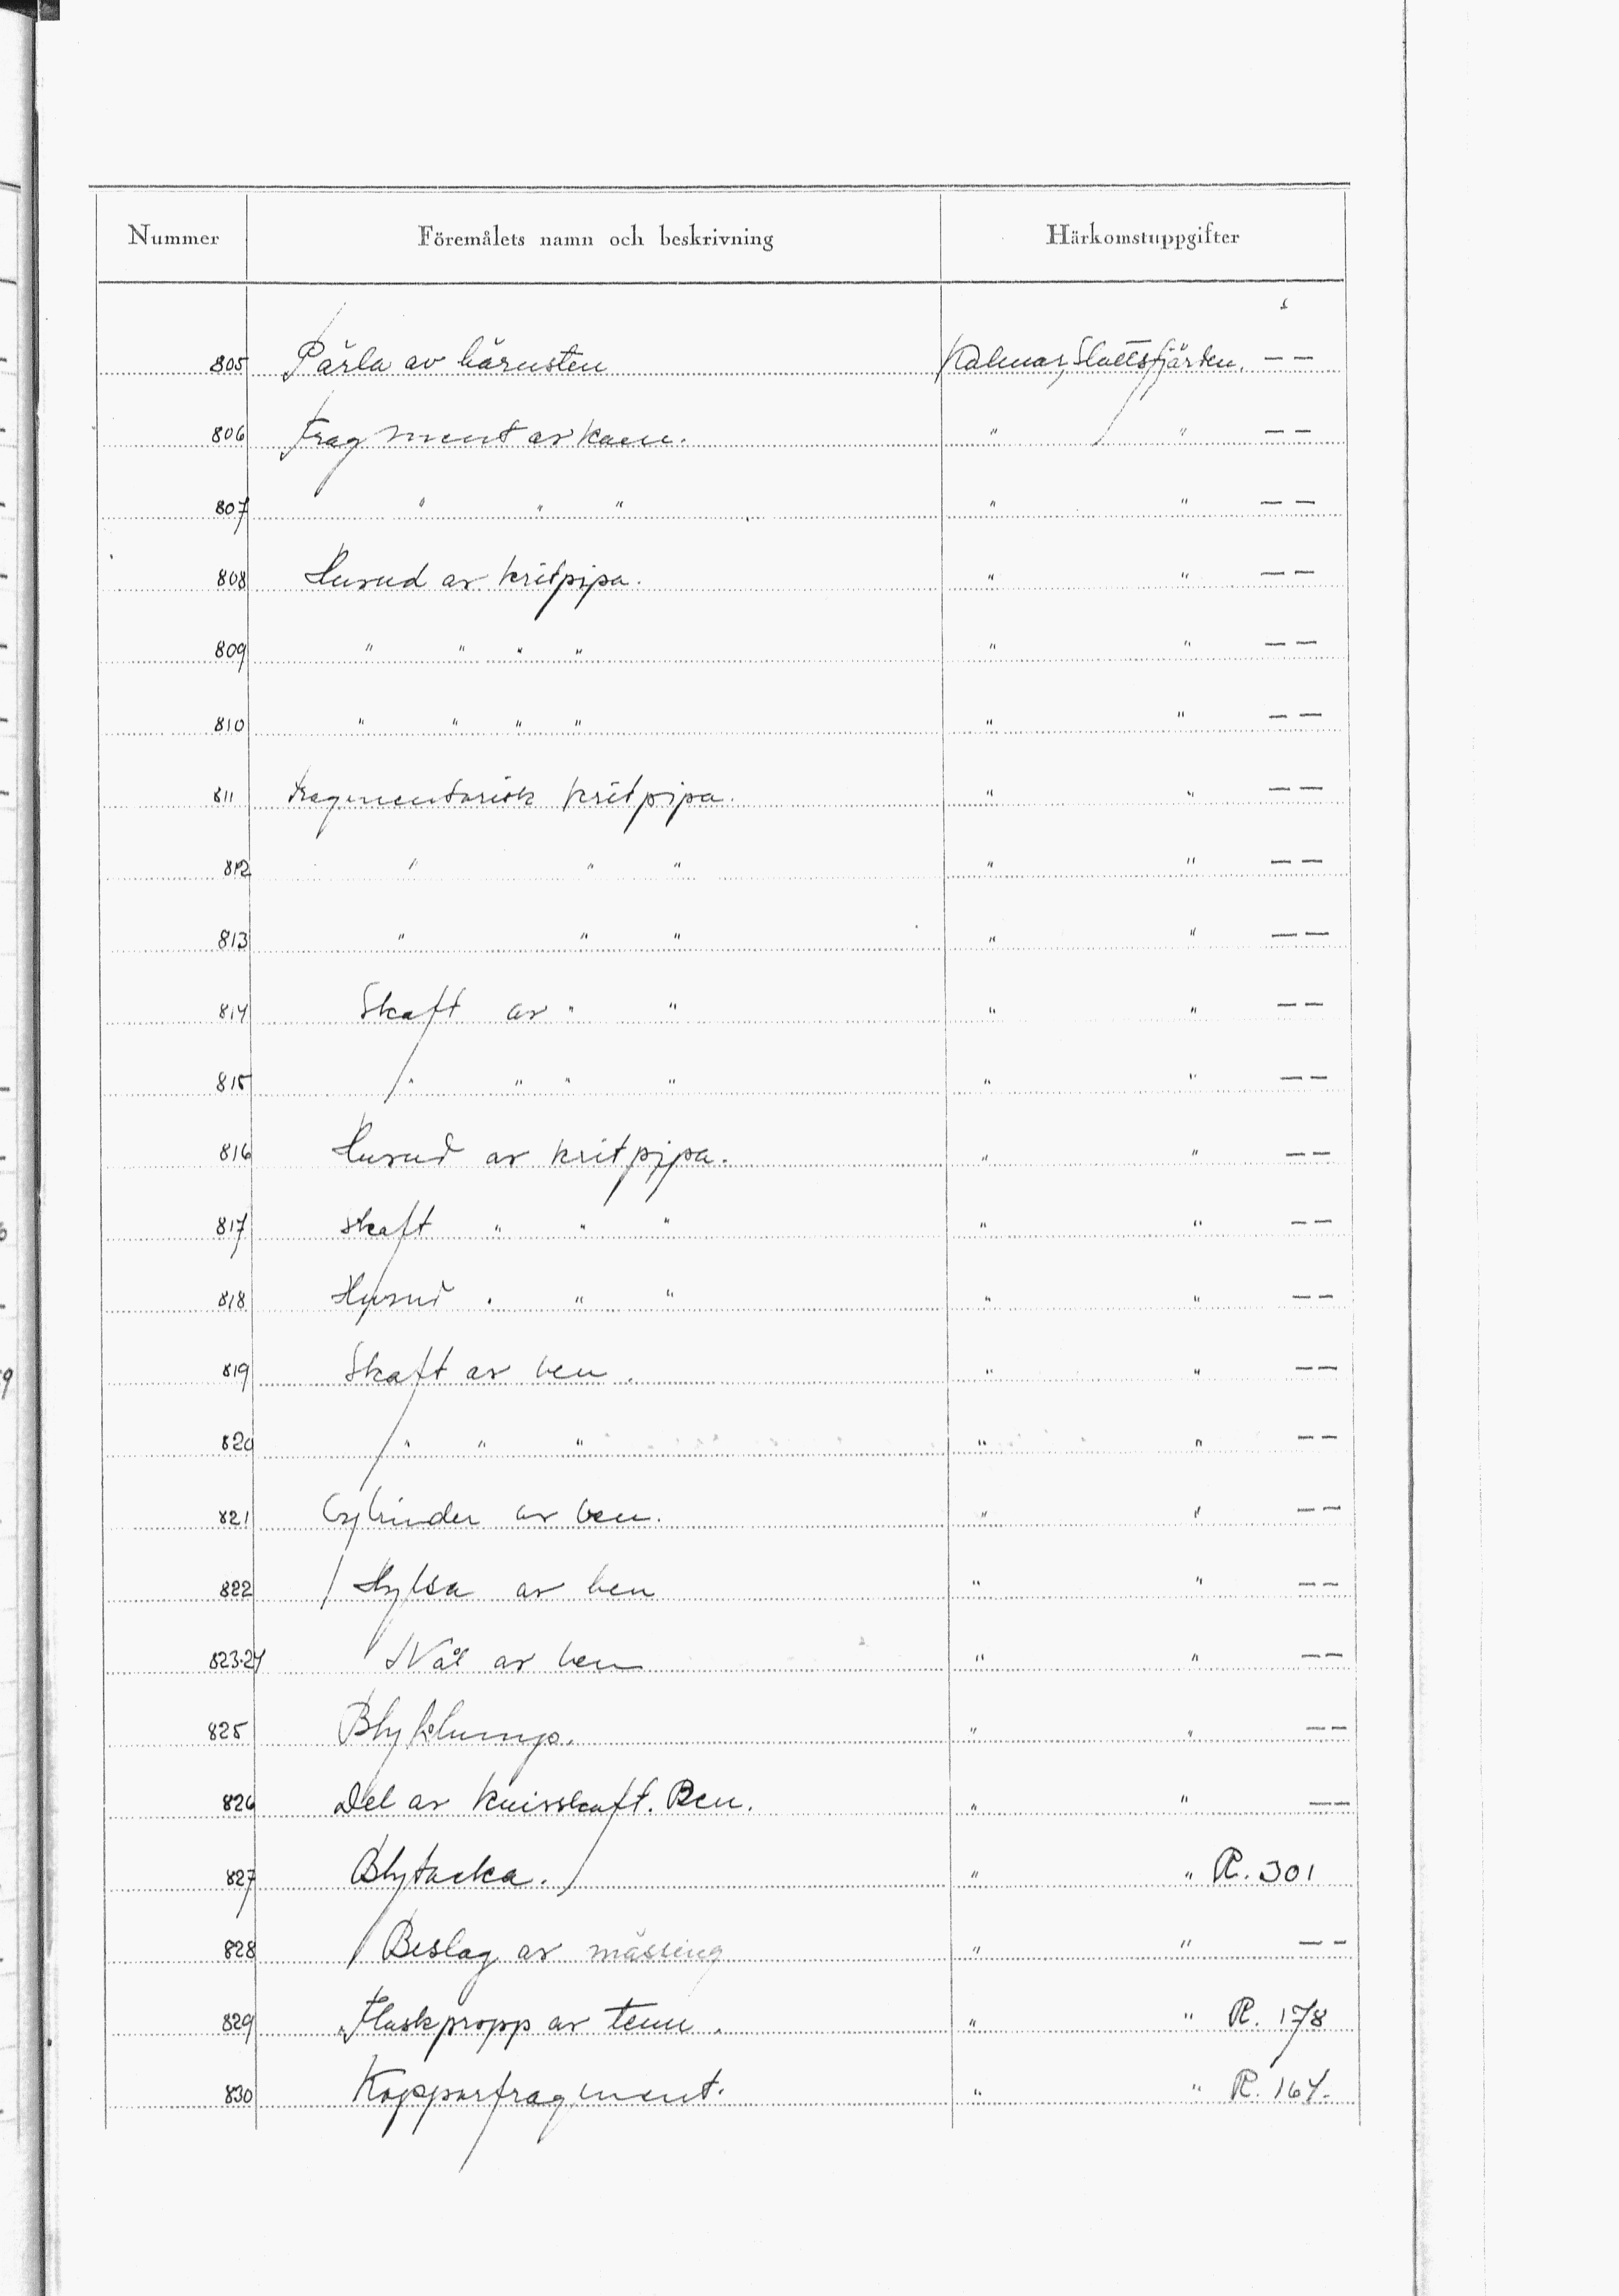 Nummer Föremålets namn och beskrivning Härkomstuppgifter
805 Pärla av bärnsten Kalmar, Slottsfjärden. — —
806 Fragment av kam. " " — —
807 " " " " " — —
808 Huvud av kritpipa. " " — —
809 " " " " " " — —
810 " " " " " " — —
811 Fragmentarisk kritpipa. " " — —
812 " " " " " — —
813 " " " " " — —
814 Skaft av " " " " — —
815 " " " " " " — —
816 Huvud av kritpipa. " " — —
817 Skaft " " " " " — —
818 Huvud " " " " " — —
819 Skaft av ben. " " — —
820 " " " " " — —
821 Cylinder av ben. " " — —
822 Hylsa av ben " " — —
823-24 Nål av ben " " — —
825 Blyklump. " " — —
826 Del av knivskaft. Ben. " " — —
827 Blytacka. " " R. 301
828 Beslag av mässing " " — —
829 Flaskpropp av tenn. " " R. 178
830 Kopparfragment. " " R. 164.